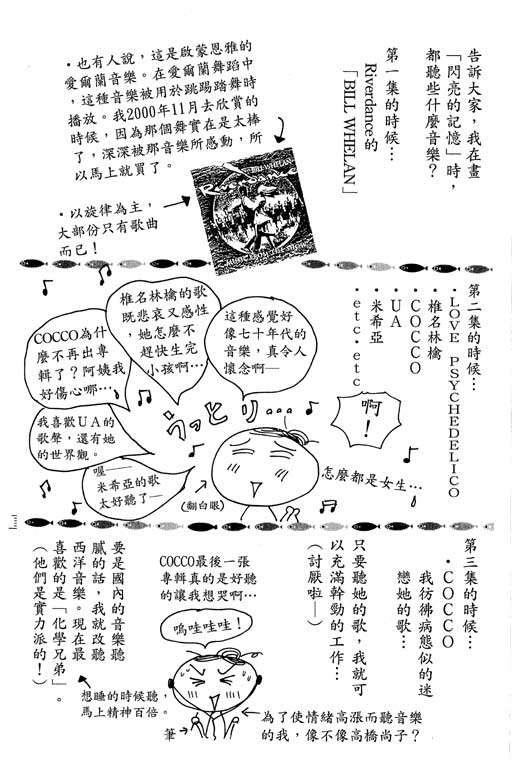 告訴大家，我在畫
「閃亮的記憶」時，
都聽些什麼音樂？
第一集的時候…
Riverdance的
「BILL WHELAN」
・也有人說，這是啟蒙恩雅的
愛爾蘭音樂。在愛爾蘭舞蹈中
，這種音樂被用於跳踢踏舞時
播放。我2000年11月去欣賞的
時候，因為那個舞實在是太棒
了，深深被那音樂所感動，所
以馬上就買了。
BILL WHELAN
・以旋律為主，
大部份只有歌曲
而已！
第二集的時候…
・LOVE PSYCHEDELICO
・椎名林檎
・COCCO
・UA
・米希亞
・etc・etc
啊！
這種感覺好
像七十年代的
音樂，真令人
懷念啊──
椎名林檎的歌
既悲哀又感性
，她怎麼不
趕快生完
小孩啊…
COCCO為什
麼不再出專
輯了？阿姨我
好傷心哪…
我喜歡UA的
歌聲，還有她
的世界觀。
喔──
米希亞的歌
太好聽了──
うっとり…
(翻白眼)
怎麼都是女生…
第三集的時候…
・COCCO
我彷彿病態似的迷
戀她的歌…
只要聽她的歌，我就可
以充滿幹勁的工作…
（討厭啦──）
COCCO最後一張
專輯真的是好聽
的讓我想哭啊…
嗚哇哇哇！
筆
為了使情緒高漲而聽音樂
的我，像不像高橋尚子？
要是國內的音樂聽
膩的話，我就改聽
西洋音樂。現在最
喜歡的是「化學兄弟」。
（他們是實力派的！）
想睡的時候聽，
馬上精神百倍。